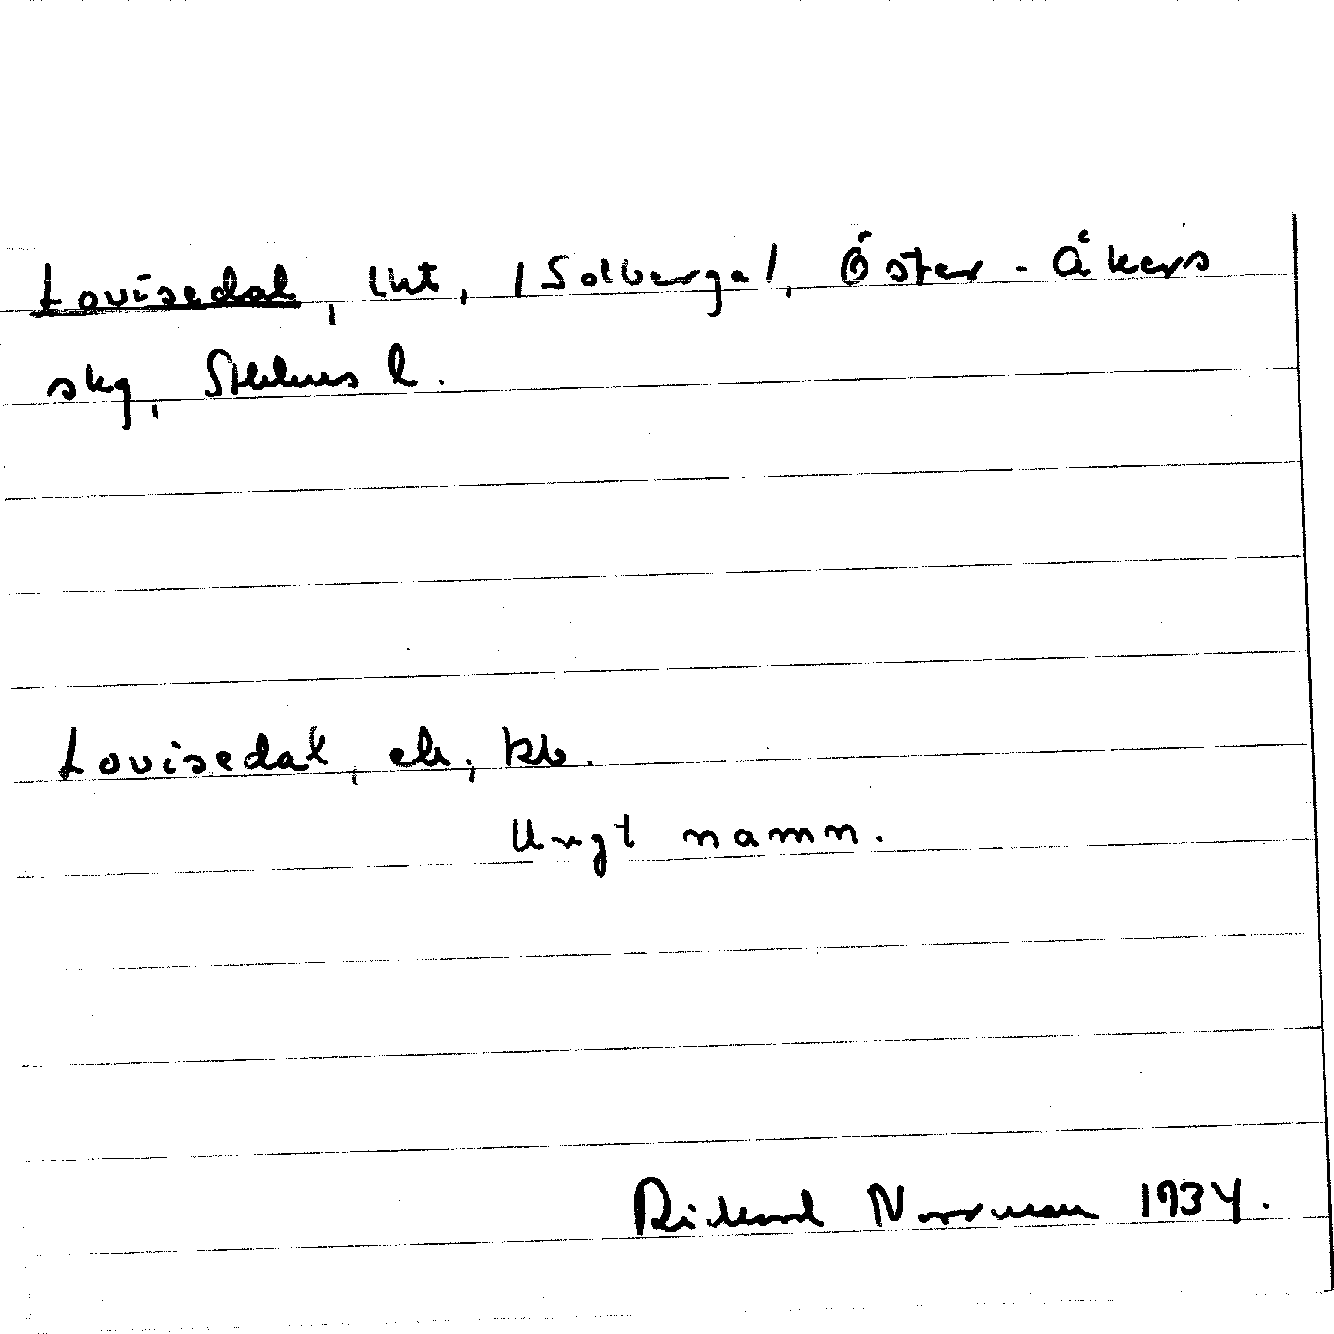 Louisedal, lht, /Solberga/, Öster-Åkers
skg, Sthlms l.
Louisedal, ek, kb.
Ungt namn.
Rickard Norrman 1934.